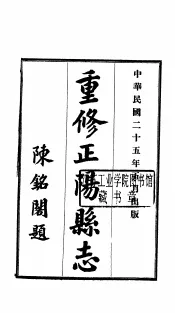 中華民國二十五年月出版
重修正陽縣志
陳銘閣題
工业学院图书馆
藏书章